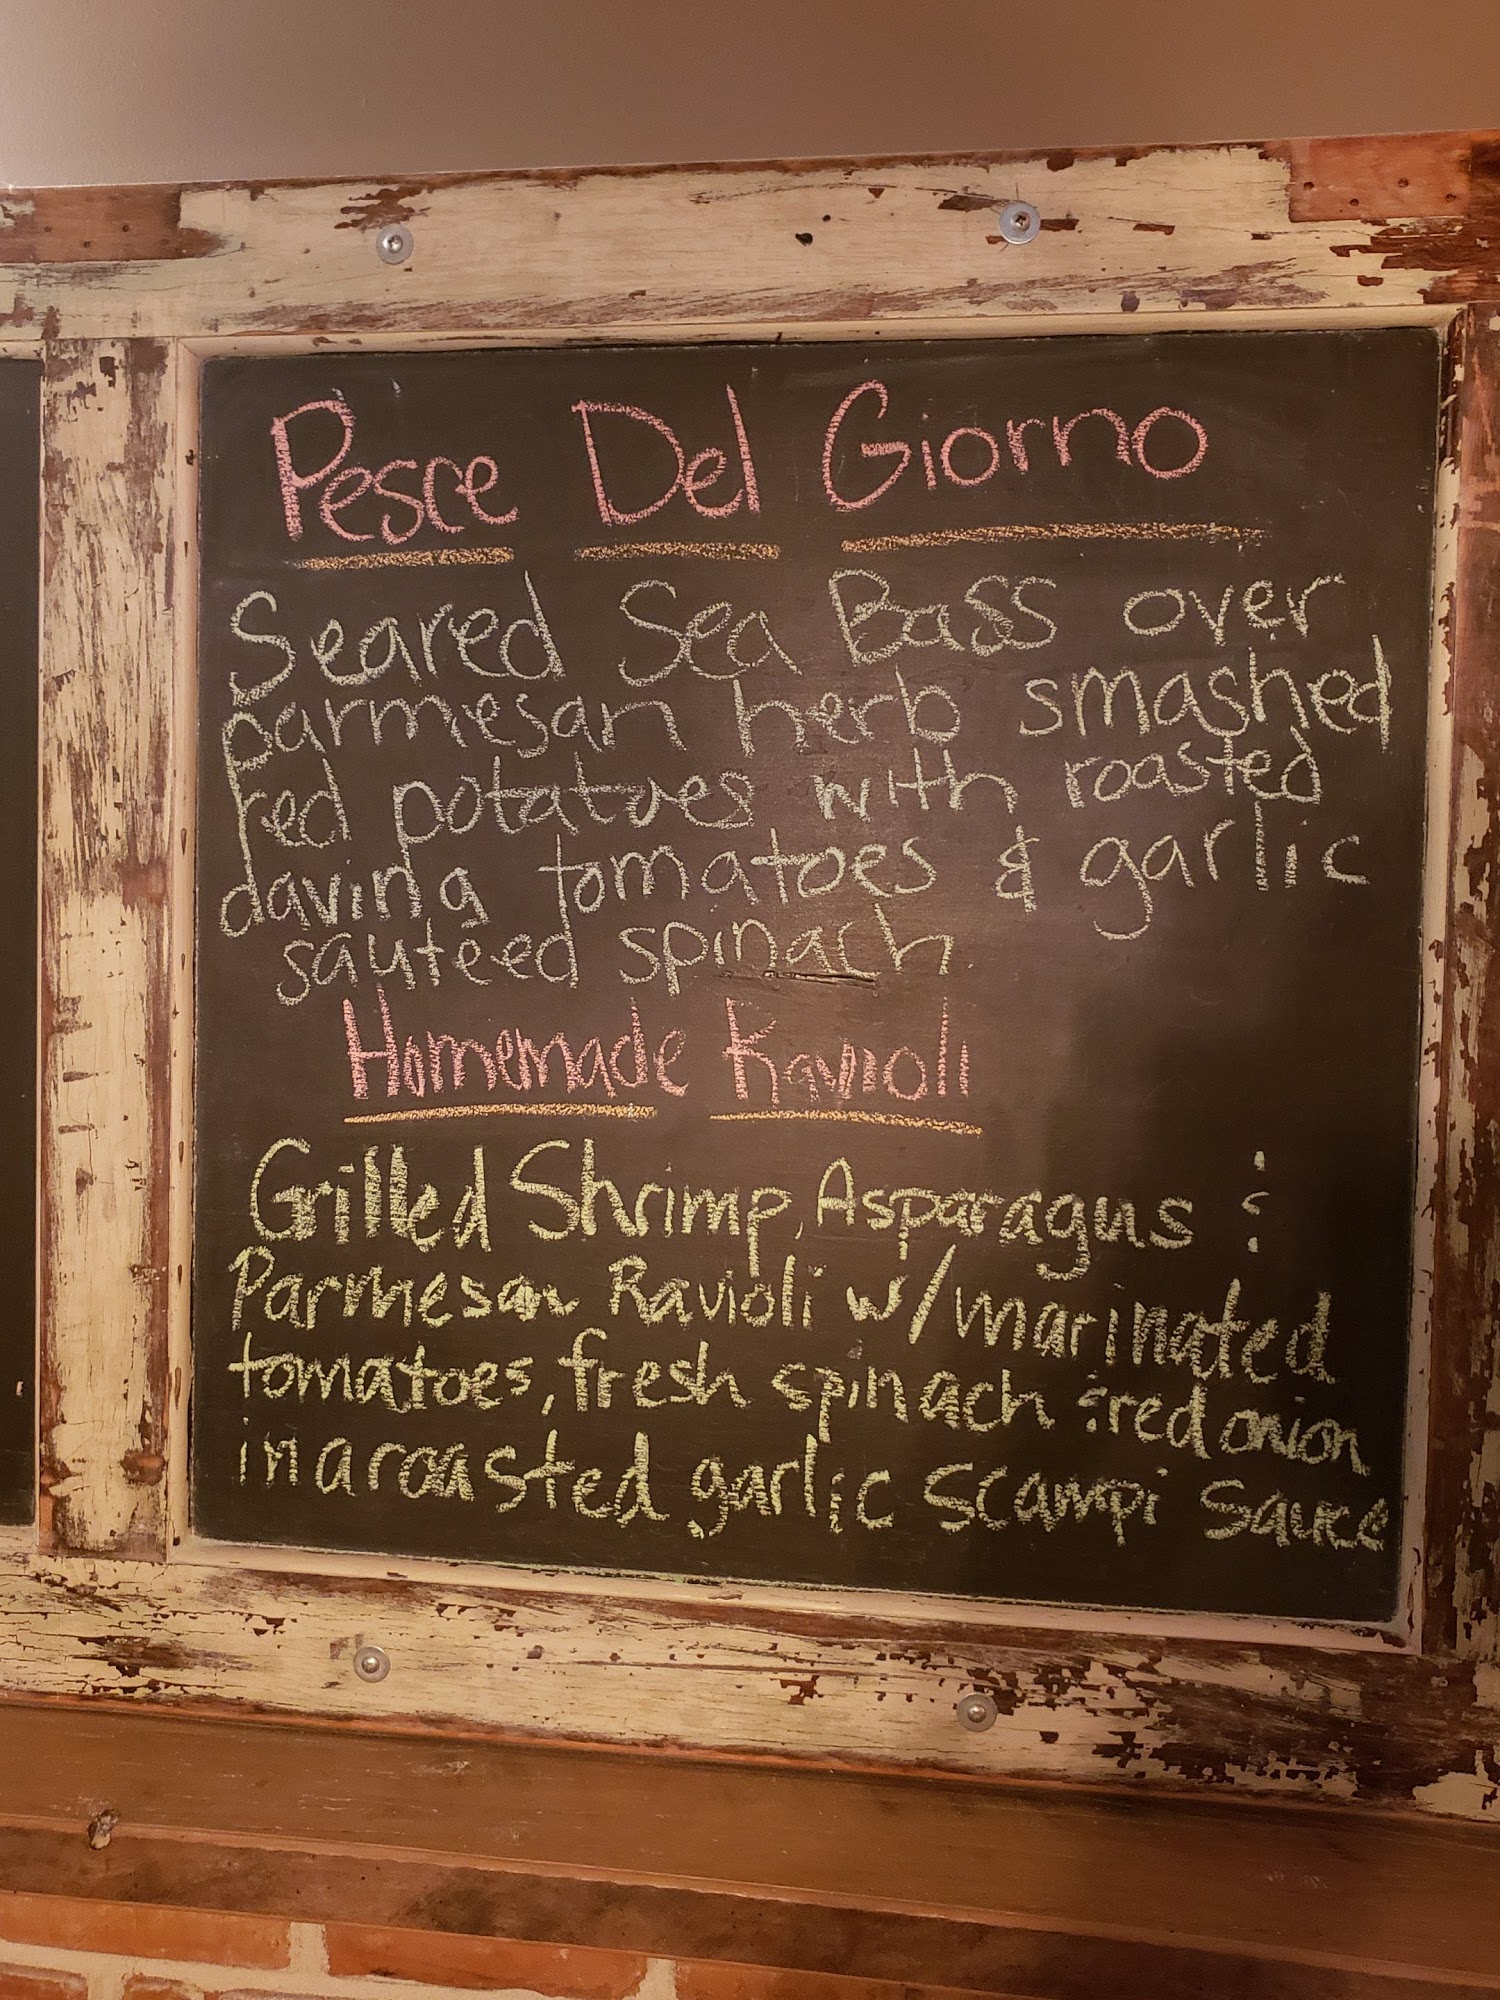 Pesce Del Giorno
Seared Sea Bass over
parmesan herb smashed
red potatoes with roasted
daving tomatoes & garlic
sautéed spinach
Homemade Ravioli
Grilled Shrimp, Asparagus &
Parmesan Ravioli w/marinated
tomatoes, fresh spinach & red onion
in a roasted garlic scampi sauce